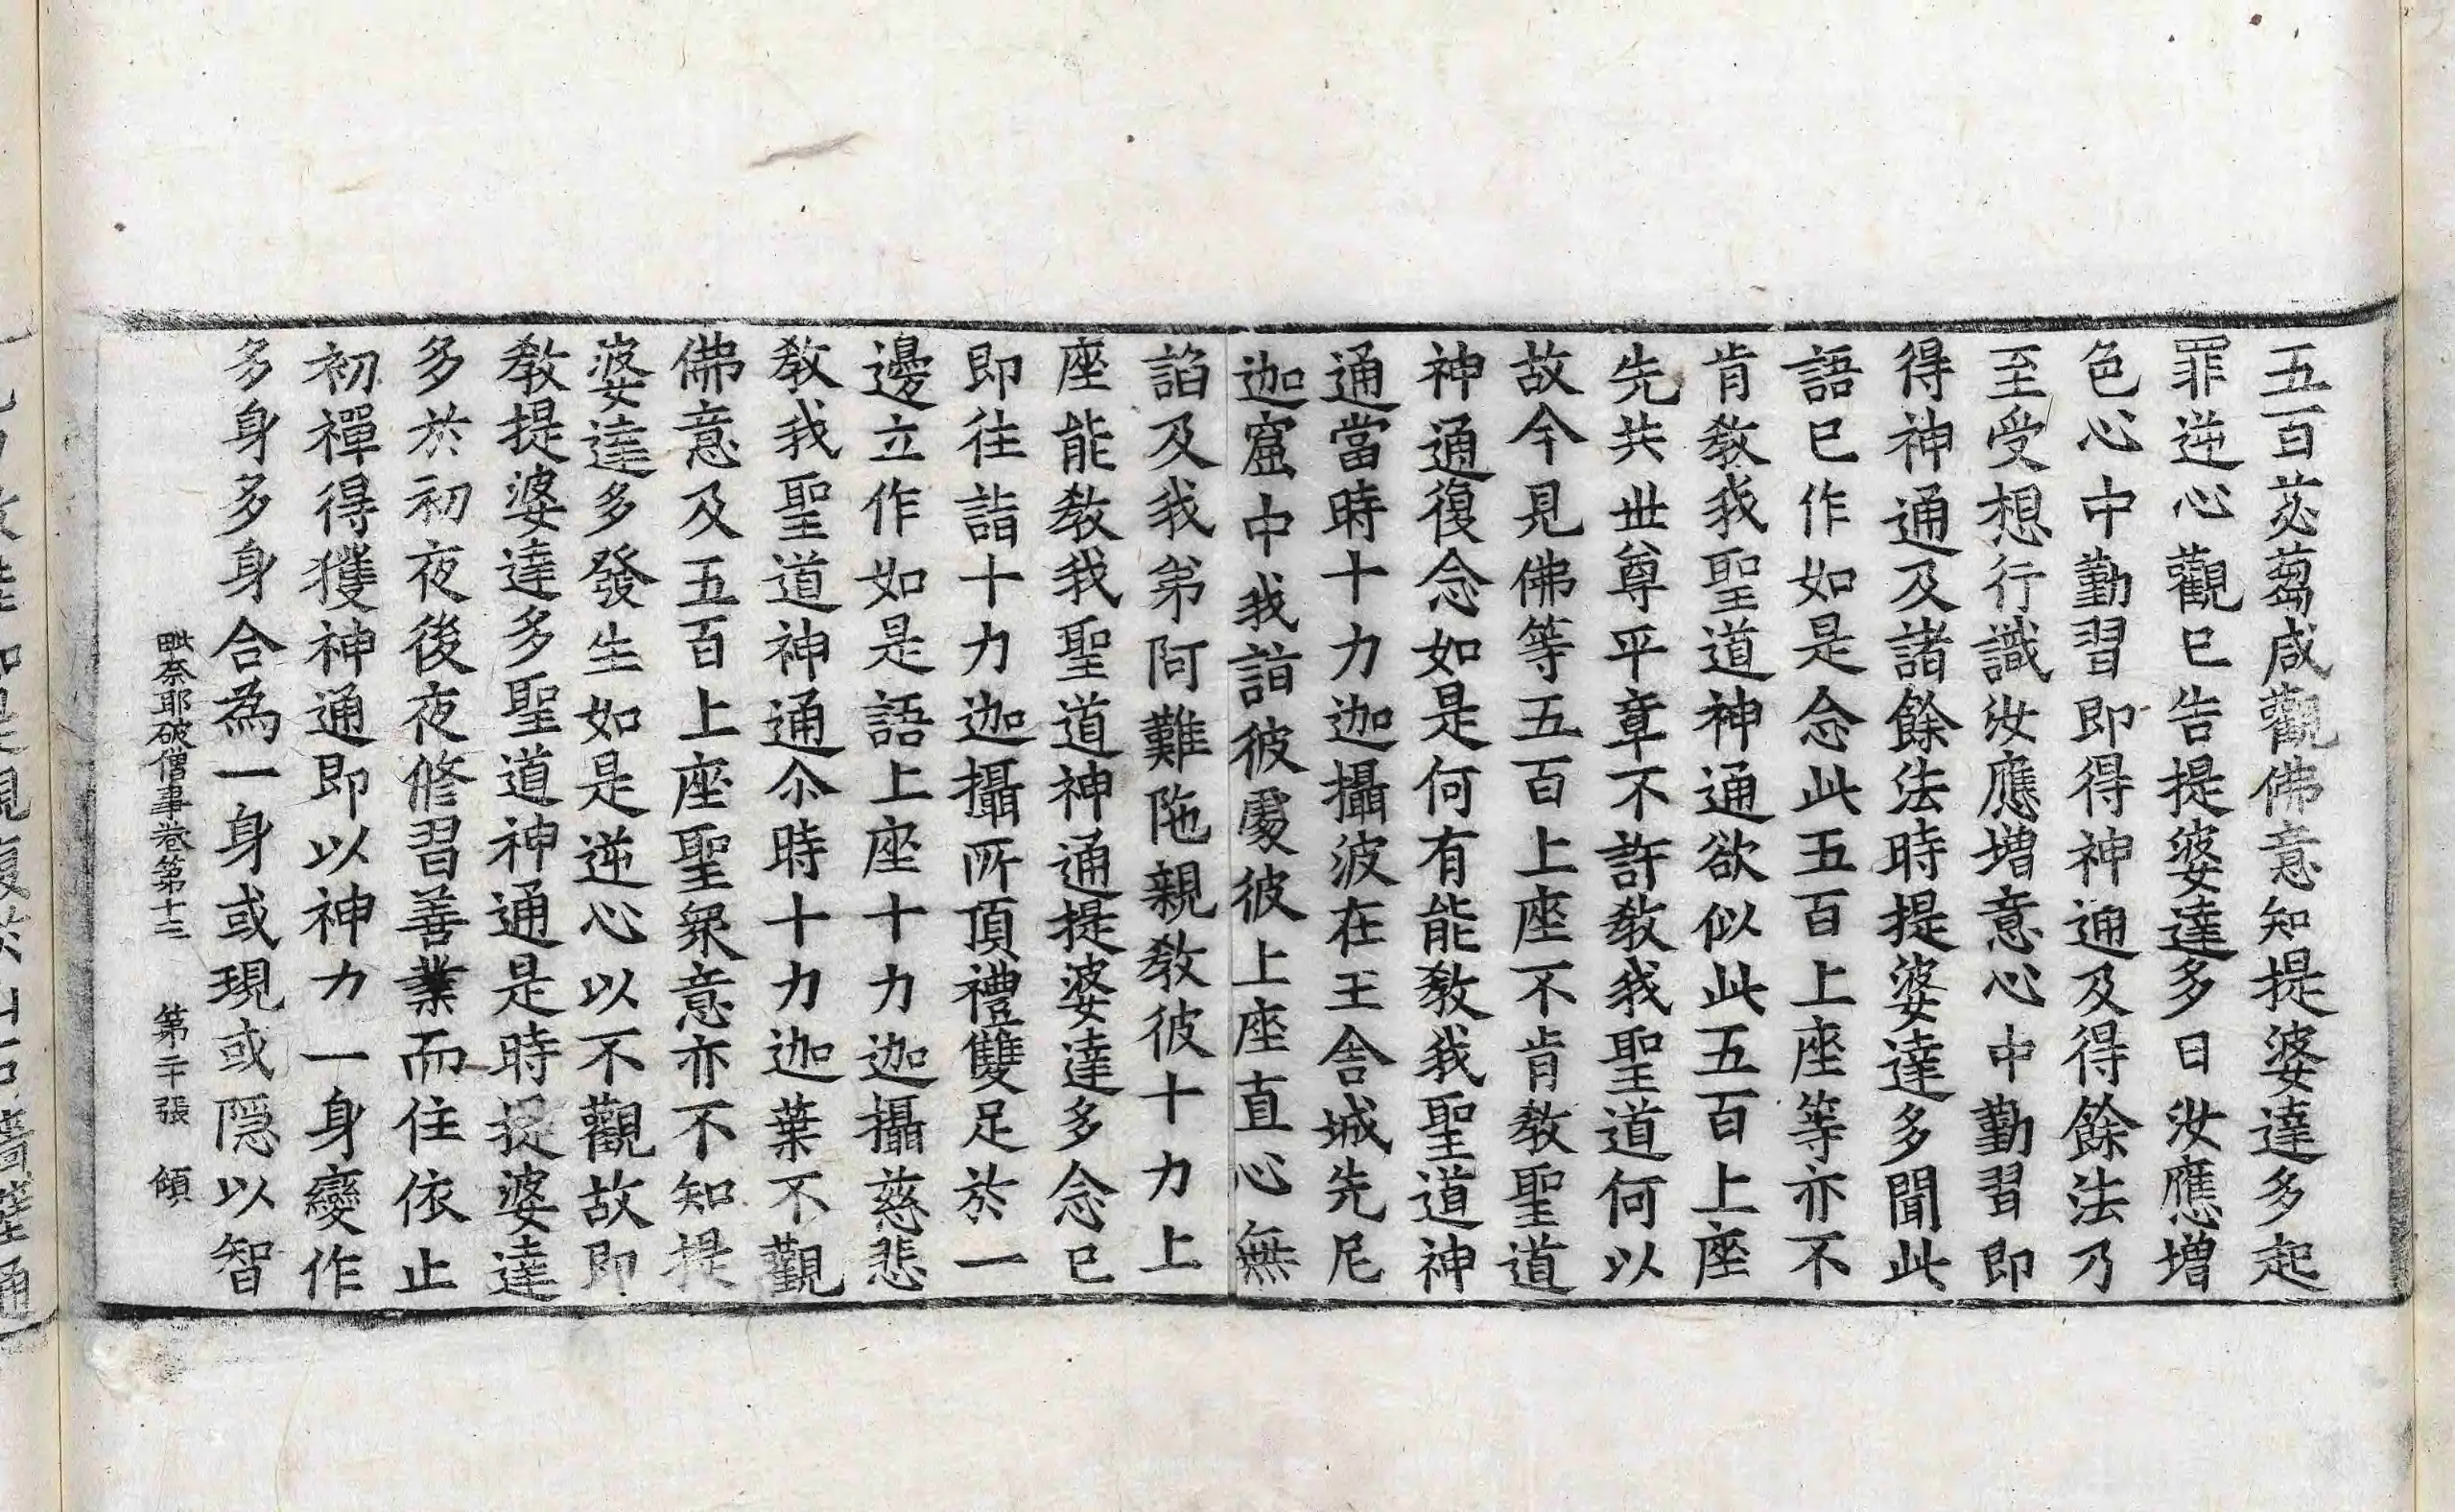 五百苾蒭咸觀佛意知提婆達多起
罪逆心觀已告提婆達多曰汝應增
色心中勤習即得神通及得餘法乃
至受想行識汝應增意心中勤習即
得神通及諸餘法時提婆達多聞此
語已作如是念此五百上座等亦不
肯教我聖道神通欲似此五百上座
先共世尊平章不許教我聖道何以
故今見佛等五百上座不肯教聖道
神通復念如是何有能教我聖道神
通當時十力迦攝波在王舍城先尼
迦窟中我詣彼處彼上座直心無
諂及我弟阿難陁親教彼十力上
座能教我聖道神通提婆達多念已
即往詣十力迦攝所頂禮雙足於一
邊立作如是語上座十力迦攝慈悲
教我聖道神通尒時十力迦葉不觀
佛意及五百上座聖衆意亦不知提
婆達多發生如是逆心以不觀故即
教提婆達多聖道神通是時提婆達
多於初夜後夜修習善業而住依止
初禪得獲神通即以神力一身變作
多身多身合為一身或現或隱以智
毗奈耶破僧事卷第十三 第二十張 傾